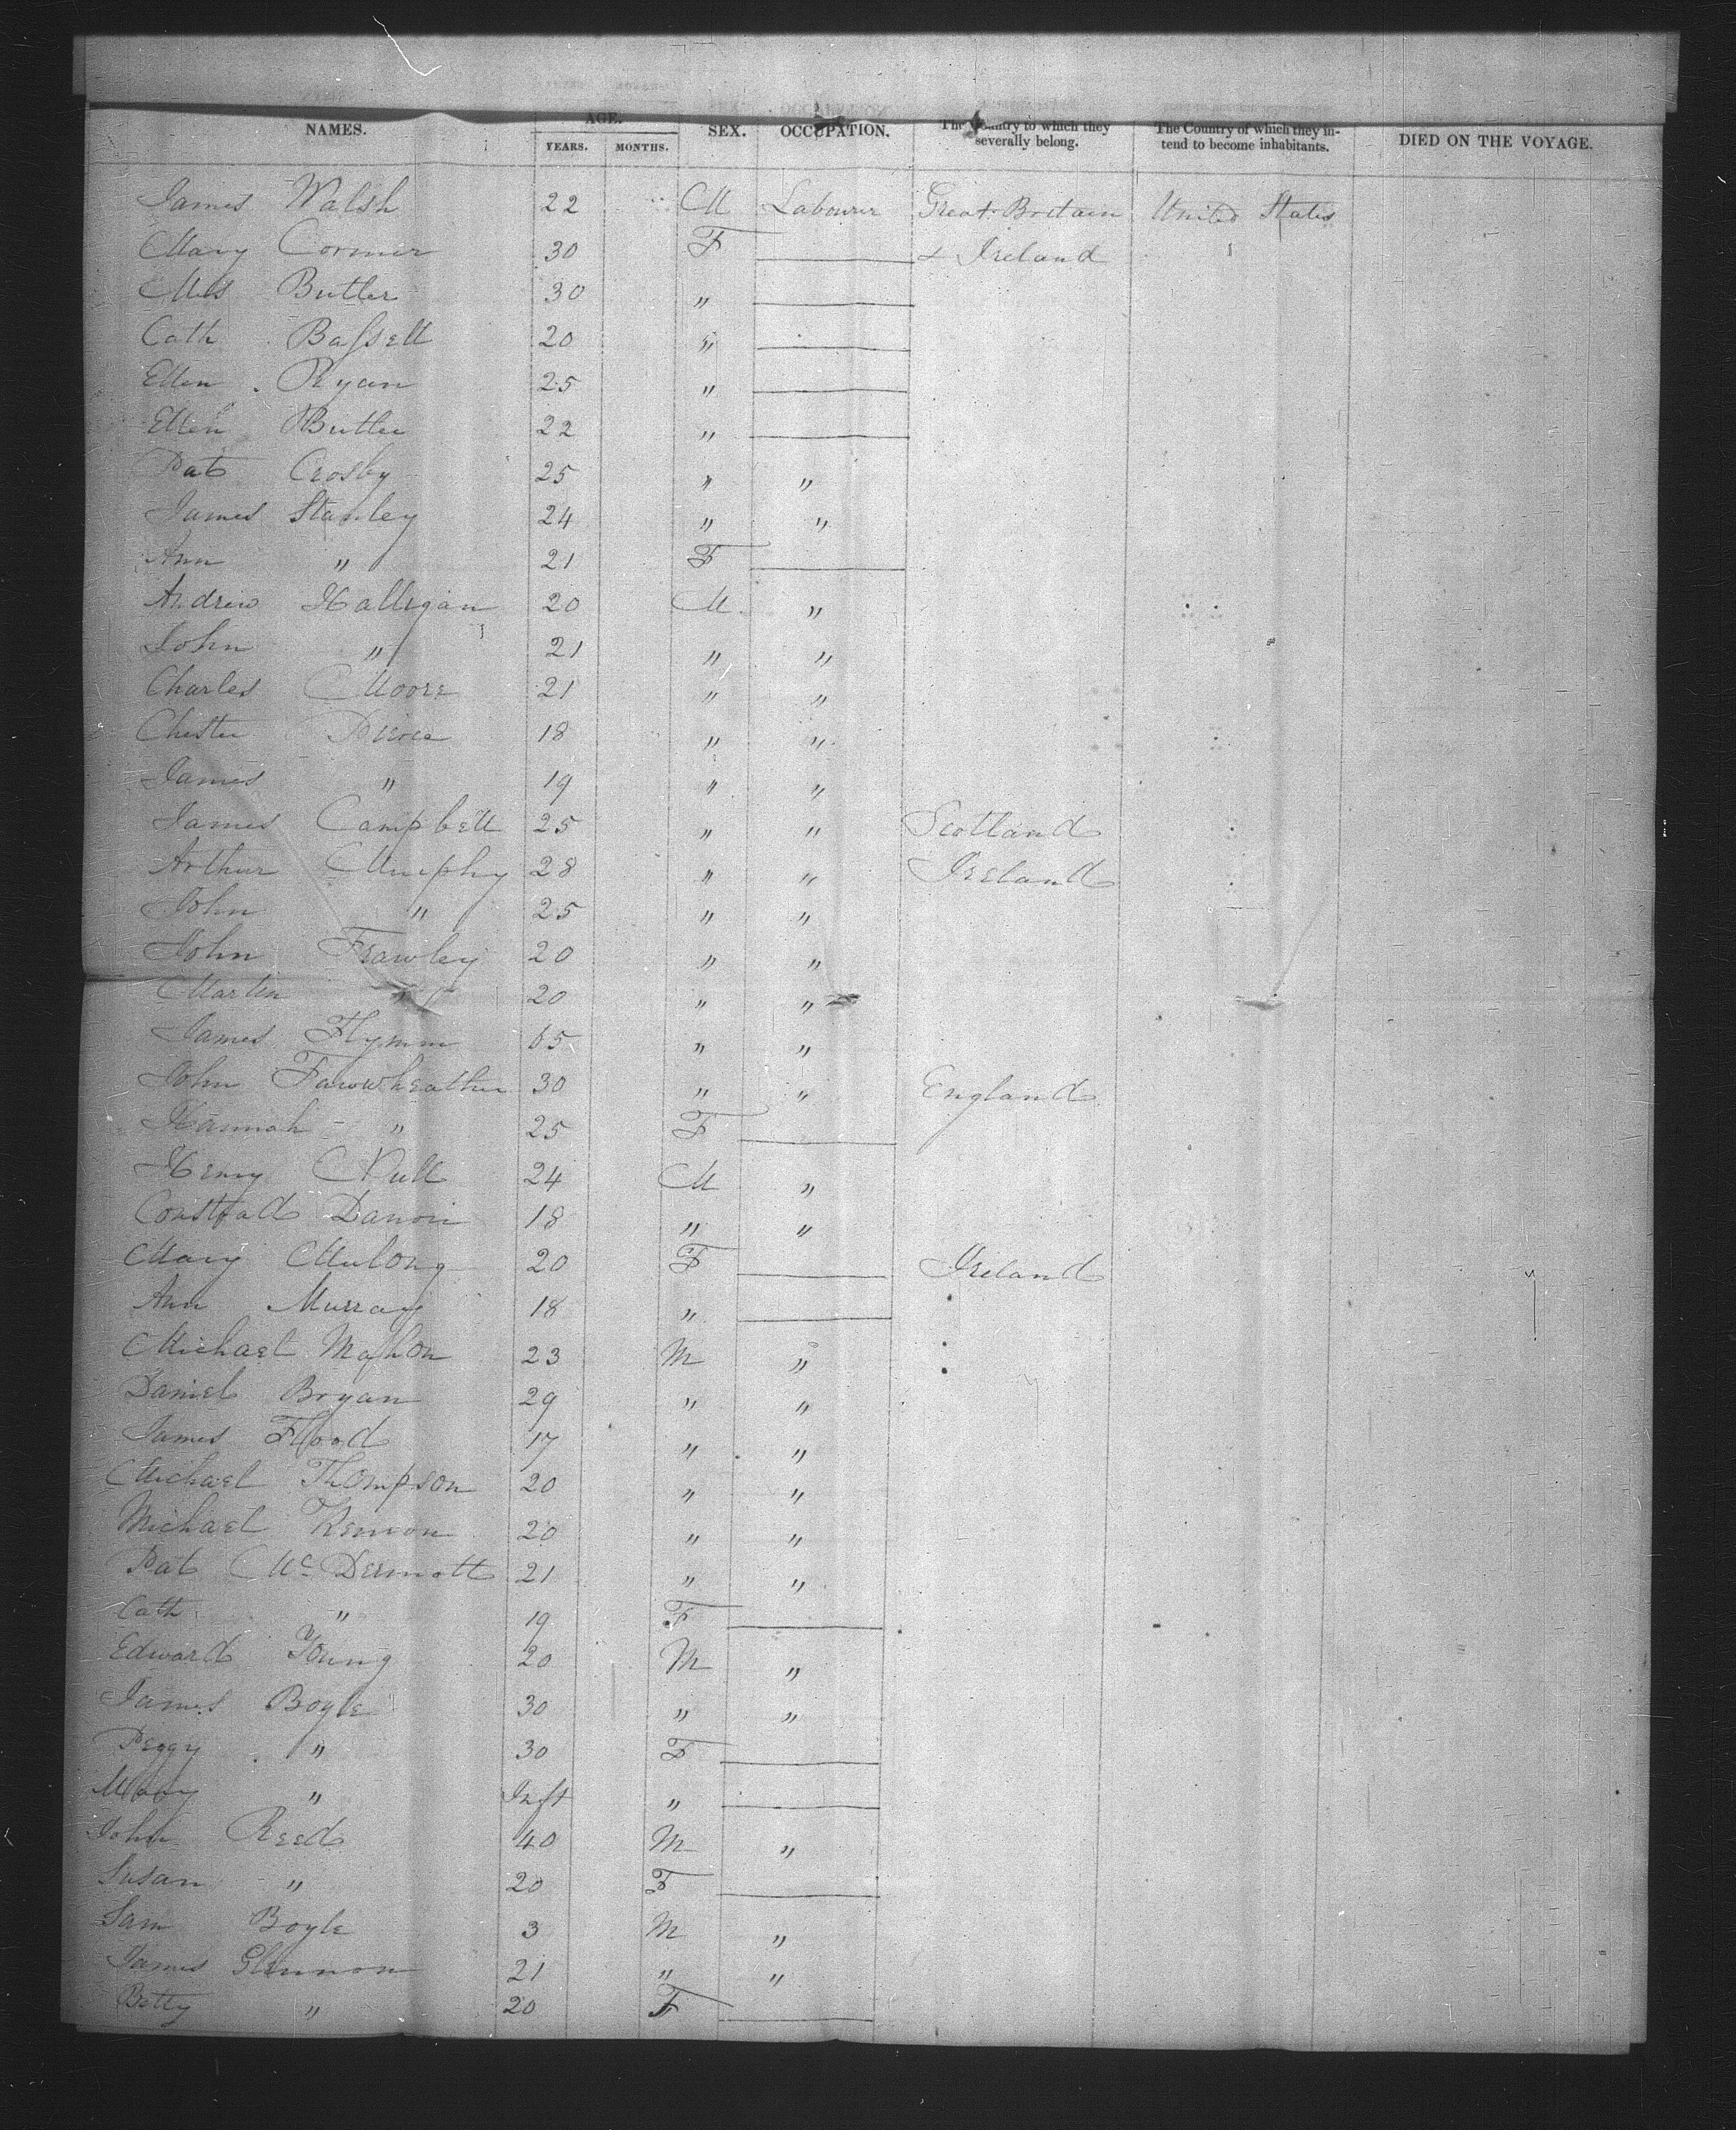 NAMES. AGE. SEX. OCCUPATION. The Country to which they severally belong. The Country of which they intend to become inhabitants. DIED ON THE VOYAGE.
YEARS. MONTHS.
James Walsh 22 M Labourer Great Britain United States
Mary Cormer 30 F & Ireland
Mrs Butler 30 "
Cath Bassett 20 "
Ellen Ryan 25 "
Ellen Butler 22 "
Pat Crosby 25 " "
James Stanley 24 " "
Ann " 21 F
Andrew Halligan 20 M "
John " 21 " "
Charles Moore 21 " "
Chester Pierce 18 " "
James " 19 " "
James Campbell 25 " " Scotland
Arthur Murphy 28 " " Ireland
John " 25 " "
John Frawley 20 " "
Martin " 20 " "
James Flynnn 65 " "
John Fawwheather 30 " " England
Hannah " 25 F
Henry Null 24 M "
18 " "
Mary Mulong 20 F Ireland
Ann Murray 18 "
Michael Mahon 23 M "
Daniel Bryan 29 " "
James Flood 17 " "
Michael Thompson 20 " "
Michael Kernon 20 " "
Pat McDermott 21 " "
Cath " 19 F
Edward Young 20 M "
James Boyle 30 " "
Peggy " 30 F
Mary " Inft "
John Reed 40 M "
Susan " 20 F
Sam Boyle 3 M "
James Glennon 21 " "
Betty " 20 F